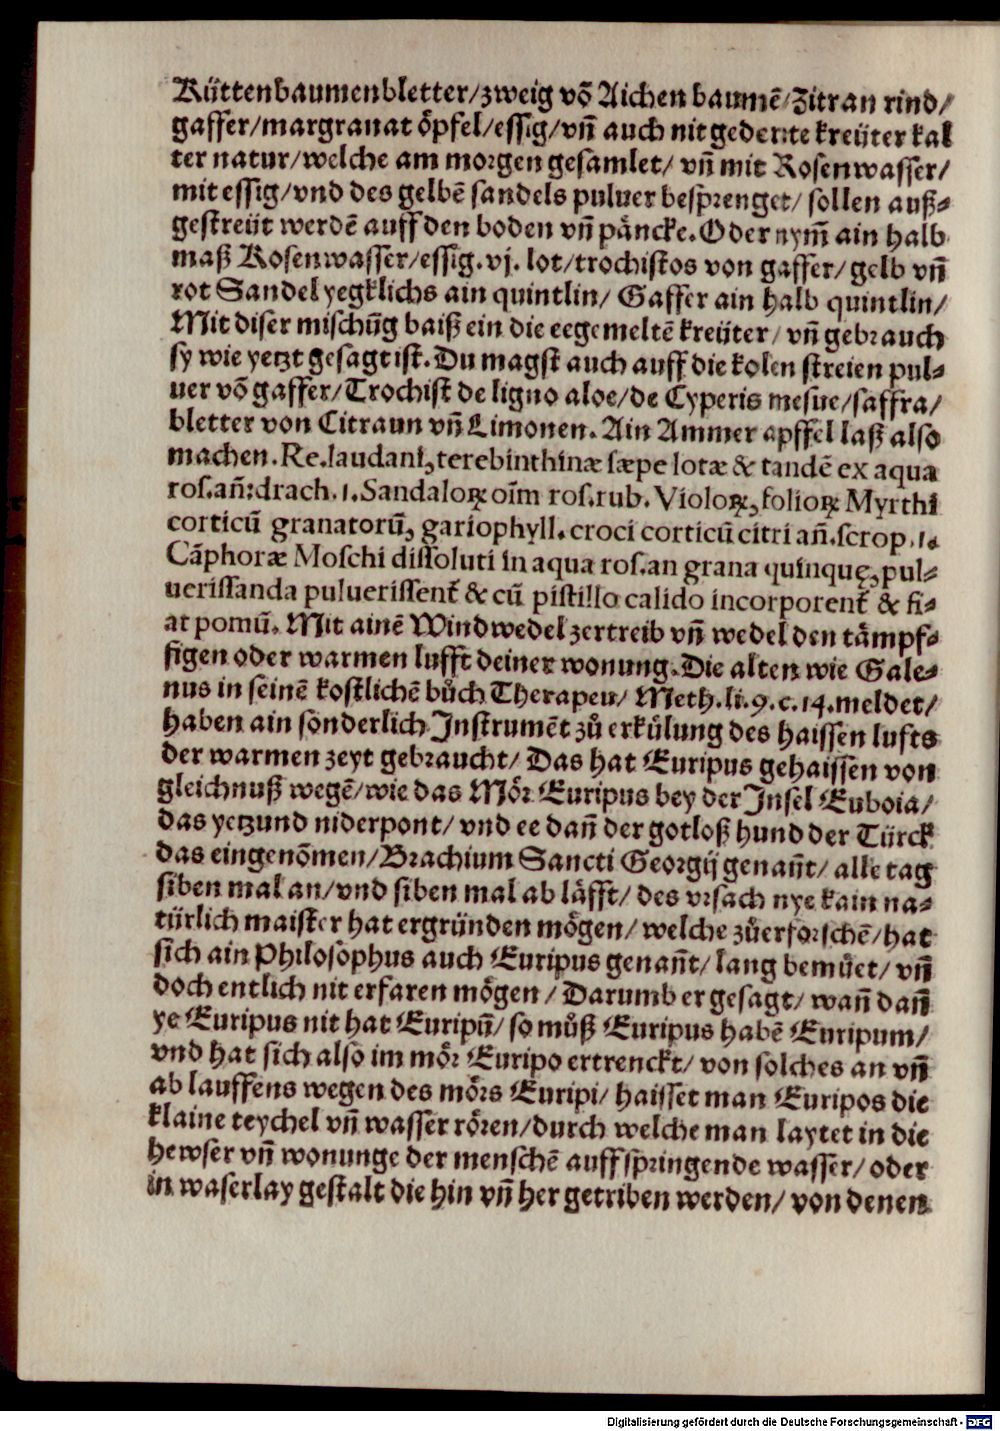 Küttenbaumenbletter/zweig võ Aichen baumẽ/Zitran rind/
gaffer/margranat öpfel/essig/vñ auch nit gederrte kreüter kal
ter natur/welche am morgen gesamlet/ vñ mit Rosenwasser/
mit essig/vnd des gelbẽ sandels puluer besprenget/ sollen auß⸗
gestreüt werdẽ auff den boden vñ päncke. Oder nym̃ ain halb
maß Rosenwasser/essig.vj. lot/trochistos von gaffer/ gelb vñ
rot Sandel yegklichs ain quintlin/ Gaffer ain halb quintlin/
Mit diser mischũg baiß ein die eegemeltẽ kreüter/ vñ gebrauch
sy wie yetzt gesagt ist. Du magst auch auff die kolen streien pul⸗
uer võ gaffer/Trochist de ligno aloe/de Cyperis mesue/saffra/
bletter von Citraun vñ Limonen. Ain Ammer apffel laß also
machen. Re. laudani, terebinthinæ sæpe lotæ & tandẽ ex aqua
ros.añ: drach. 1. Sandaloꝝ oĩm ros.rub. Violoꝝ, folioꝝ Myrthi
corticũ granatorũ, gariophyll. croci corticũ citri añ. scrop. 1.
Cãphoræ Moschi dissoluti in aqua ros.an grana quinquę, pul⸗
uerissanda puluerissent̃ & cũ pistillo calido incorporent̃ & fi⸗
at pomũ. Mit ainẽ Windwedel zertreib vñ wedel den tämpf⸗
figen oder warmen lufft deiner wonung. Die alten wie Gale⸗
nus in seinẽ kostlichẽ bůch Therapeu/ Meth. li. 9. c. 14. meldet/
haben ain sonderlich Instrumẽt zů erkülung des haissen lufts
der warmen zeyt gebraucht/ Das hat Euripus gehaissen von
gleichnuß wegẽ/wie das Mör Euripus bey der Insel Euboia/
das yetzund niderpont/ vnd ee dañ der gotloß hund der Türck
das eingenõmen/Brachium Sancti Georgij genañt/ alle tag
siben mal an/vnd siben mal ab läfft/ des vrsach nye kain na⸗
türlich maister hat ergründen mögen/ welche zůerforschẽ/hat
sich ain Philosophus auch Euripus genañt/ lang bemüet/ vñ
doch entlich nit erfaren mögen / Darumb er gesagt/ wañ dañ
ye Euripus nit hat Euripũ/ so můß Euripus habẽ Euripum/
vnd hat sich also im mör Euripo ertrenckt/ von solches an vñ
ab lauffens wegen des mörs Euripi/ haisset man Euripos die
klaine teychel vñ wasser rören/durch welche man laytet in die
hewser vñ wonunge der menschẽ auffspringende wasser/ oder
in waserlay gestalt die hin vñ her getriben werden/ von denen
Digitalisierung gefördert durch die Deutsche Forschungsgemeinschaft - DFG